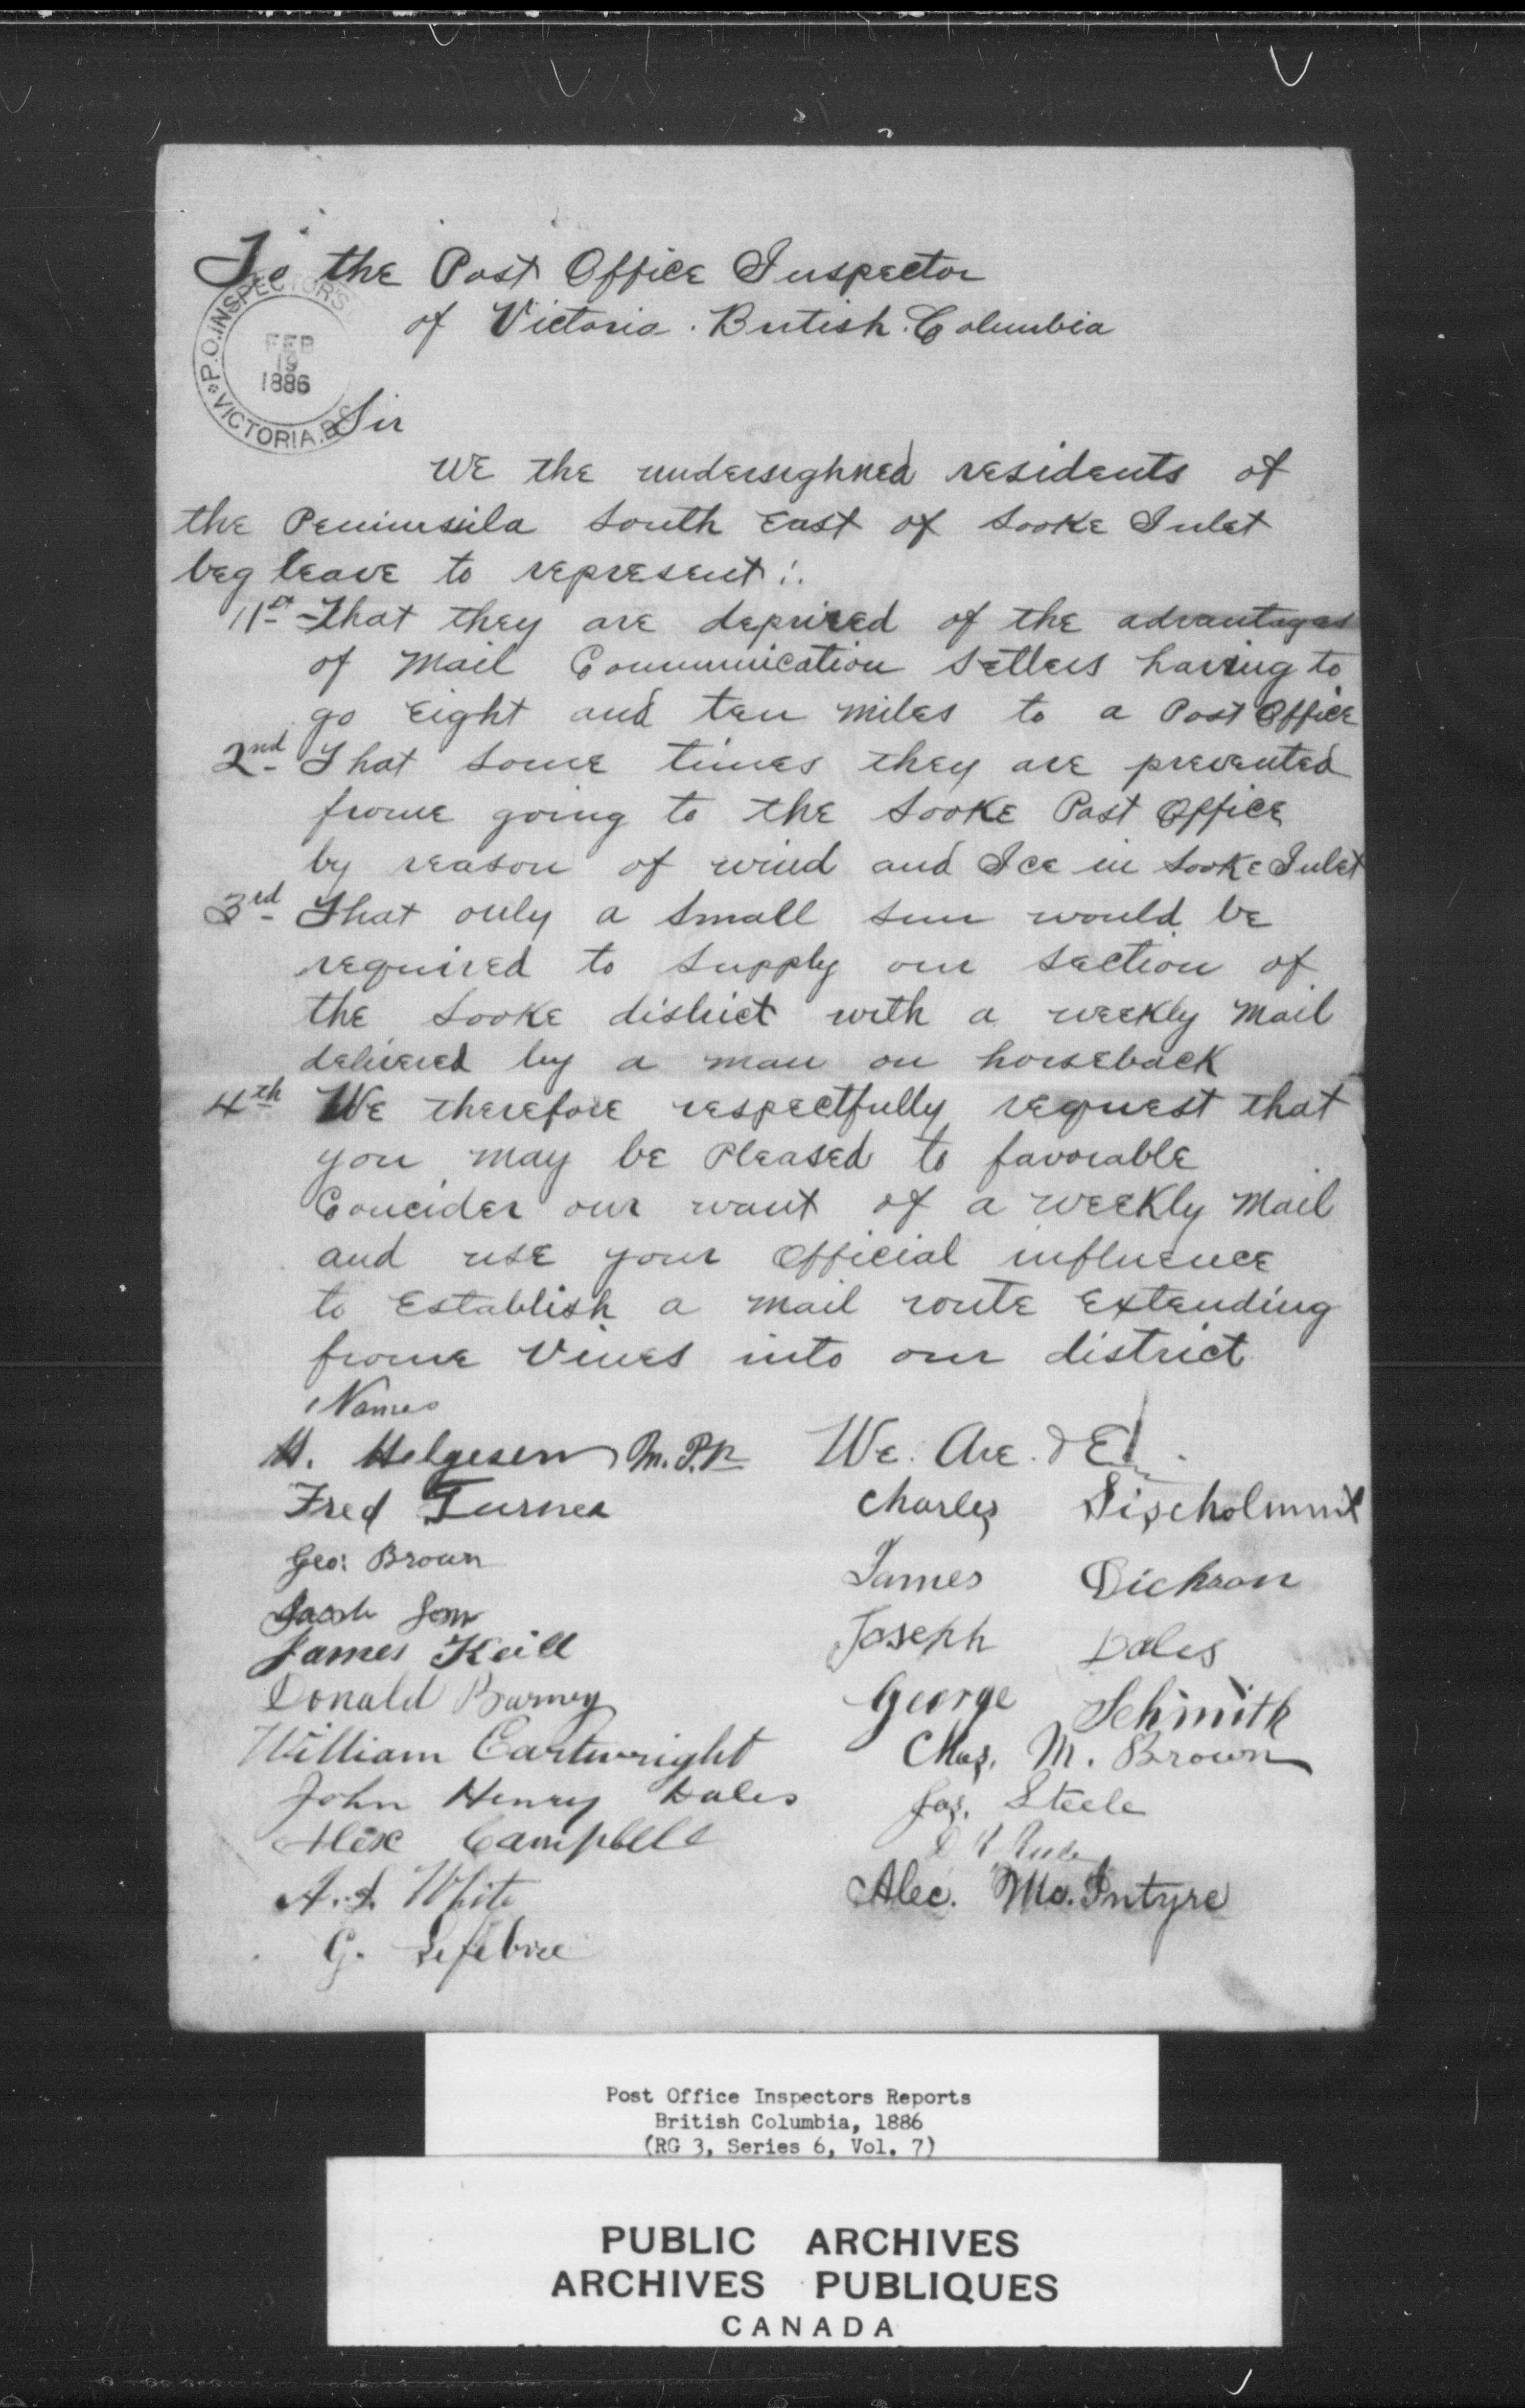 To the Post Office Inspector
of Victoria. British Columbia
P.O. INSPECTOR'S
FEB
19
1886
VICTORIA. B.C.
Sir
WE the undersighned residents of
the Peninrsula South East of Sooke Inlet
beg leave to represent:.
1st That they are deprived of the advantages
of Mail Communication Settlers having to
go Eight and ten Miles to a Post Office
2nd That some times they are prevented
frome going to the Sooke Post Office
by reason of wind and Ice in Sooke Inlet
3rd That only a small sum would be
required to supply our section of
the Sooke district with a weekly Mail
delivered by a man on horseback
4th We therefore respectfully request that
you may be Pleased to favorable
Concider our want of a weekly Mail
and use your Official influence
to Establish a Mail route Extending
frome Vines into our district
Names
H. Helgesen M.P.P.
Fred Turner
Geo: Brown
James Keill
Donald
William Cartwright
John Henry Dales
Alex Campbell
A. White
G. Lefebvre
We. Are.
Charles
James Dickson
Joseph Dales
George Schmith
Chas. M. Brown
Jas. Steele
Alec. Mc.Intyre
Post Office Inspectors Reports
British Columbia, 1886
(RG 3, Series 6, Vol. 7)
PUBLIC ARCHIVES
ARCHIVES PUBLIQUES
CANADA